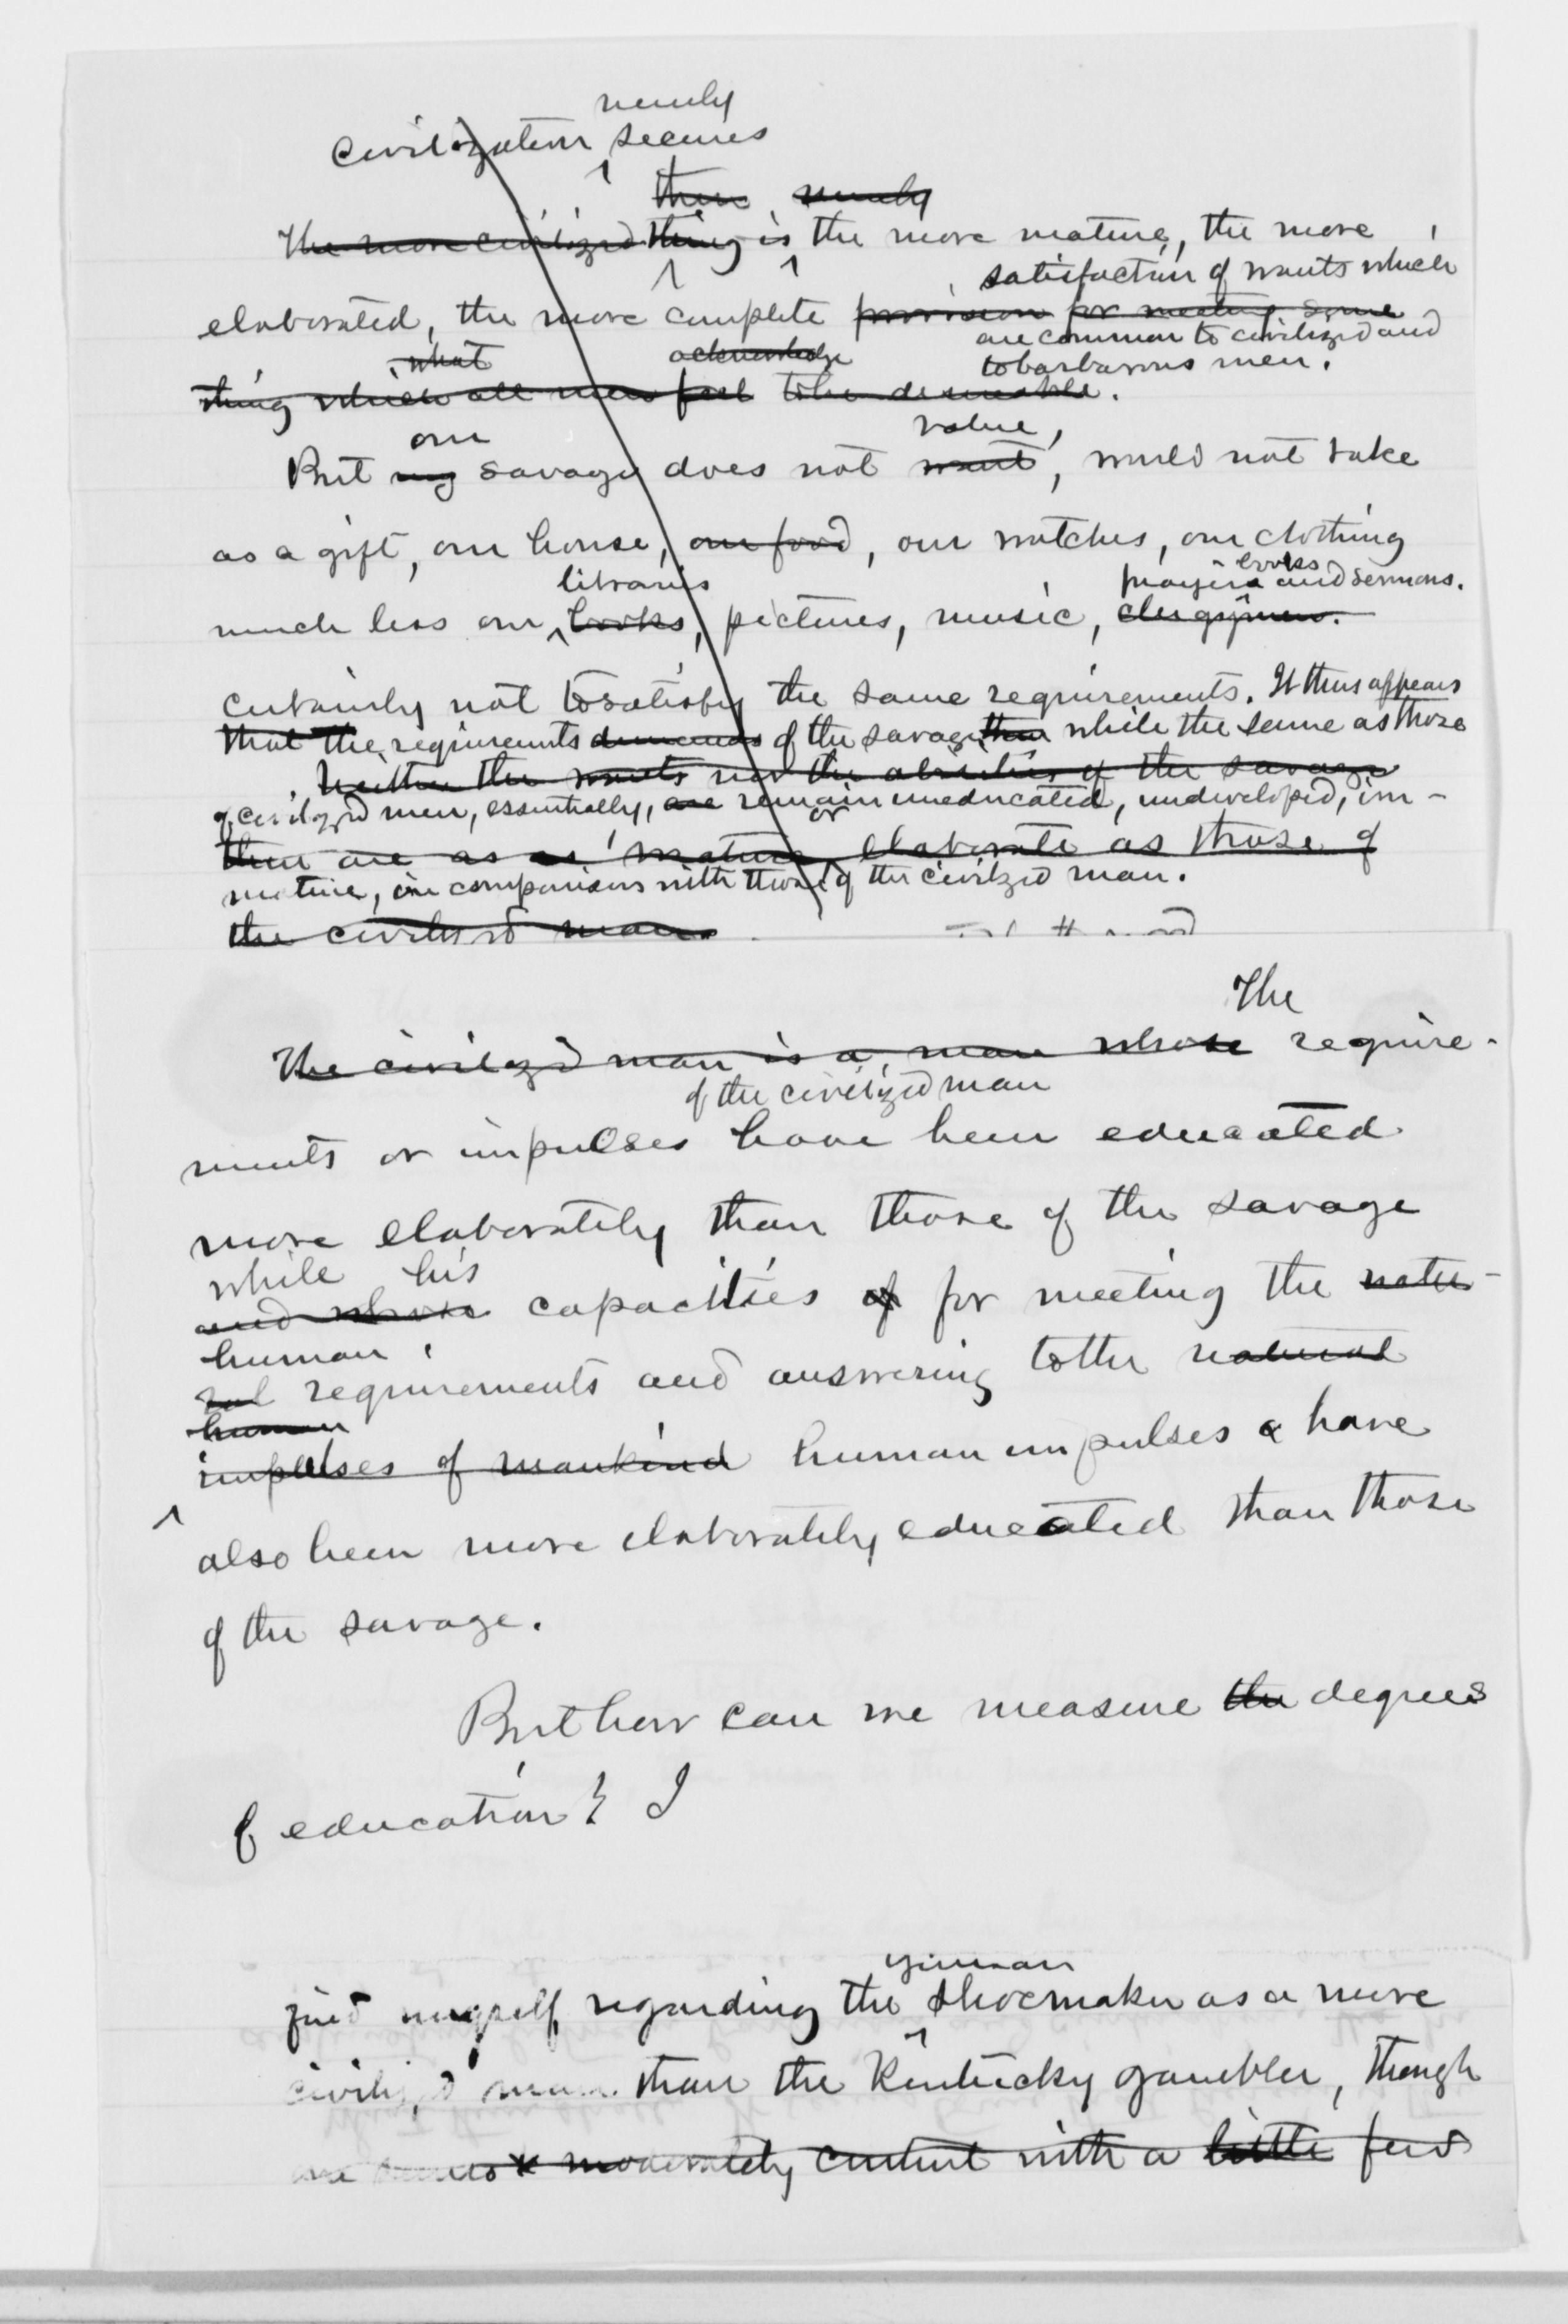 merely
Civilization secures
then merely
The more civilized thing is the more mature, the more
satisfaction of wants which
elaborated, the more complete provision for meeting some
are common to civilized and
what acknowledge to barbarous men.
thing which all men feel to be desireable.
our value,
But my savage does not want, would not take
as a gift, our house, our food, our watches, our clothing
libraries prayers books and sermons.
much less our books, pictures, music, clergymen.
certainly not to satisfy the same requirements. It thus appears
that the requirements demands of the savage then while the same as those
Neither the wants nor the abilities of the savage
of civilized men, essentially, are remain uneducated, undeveloped, im-
or
then are as as mature elaborate as those of
mature, in comparison with those of the civilized man.
the civilized man
The
The civilized man is a man whose require-
of the civilized man
ments or impulses have been educated
more elaborately than those of the savage
while his
and whose capacities of for meeting the natu-
human
ral requirements and answering to the natural
human
impulses of mankind human impulses have
also been more elaborately educated than those
of the savage.
But how can we measure the degrees
of education? I
find myself regarding the shoemaker as a more
civilized man than the Kentucky gambler, though
moderately content with a little few